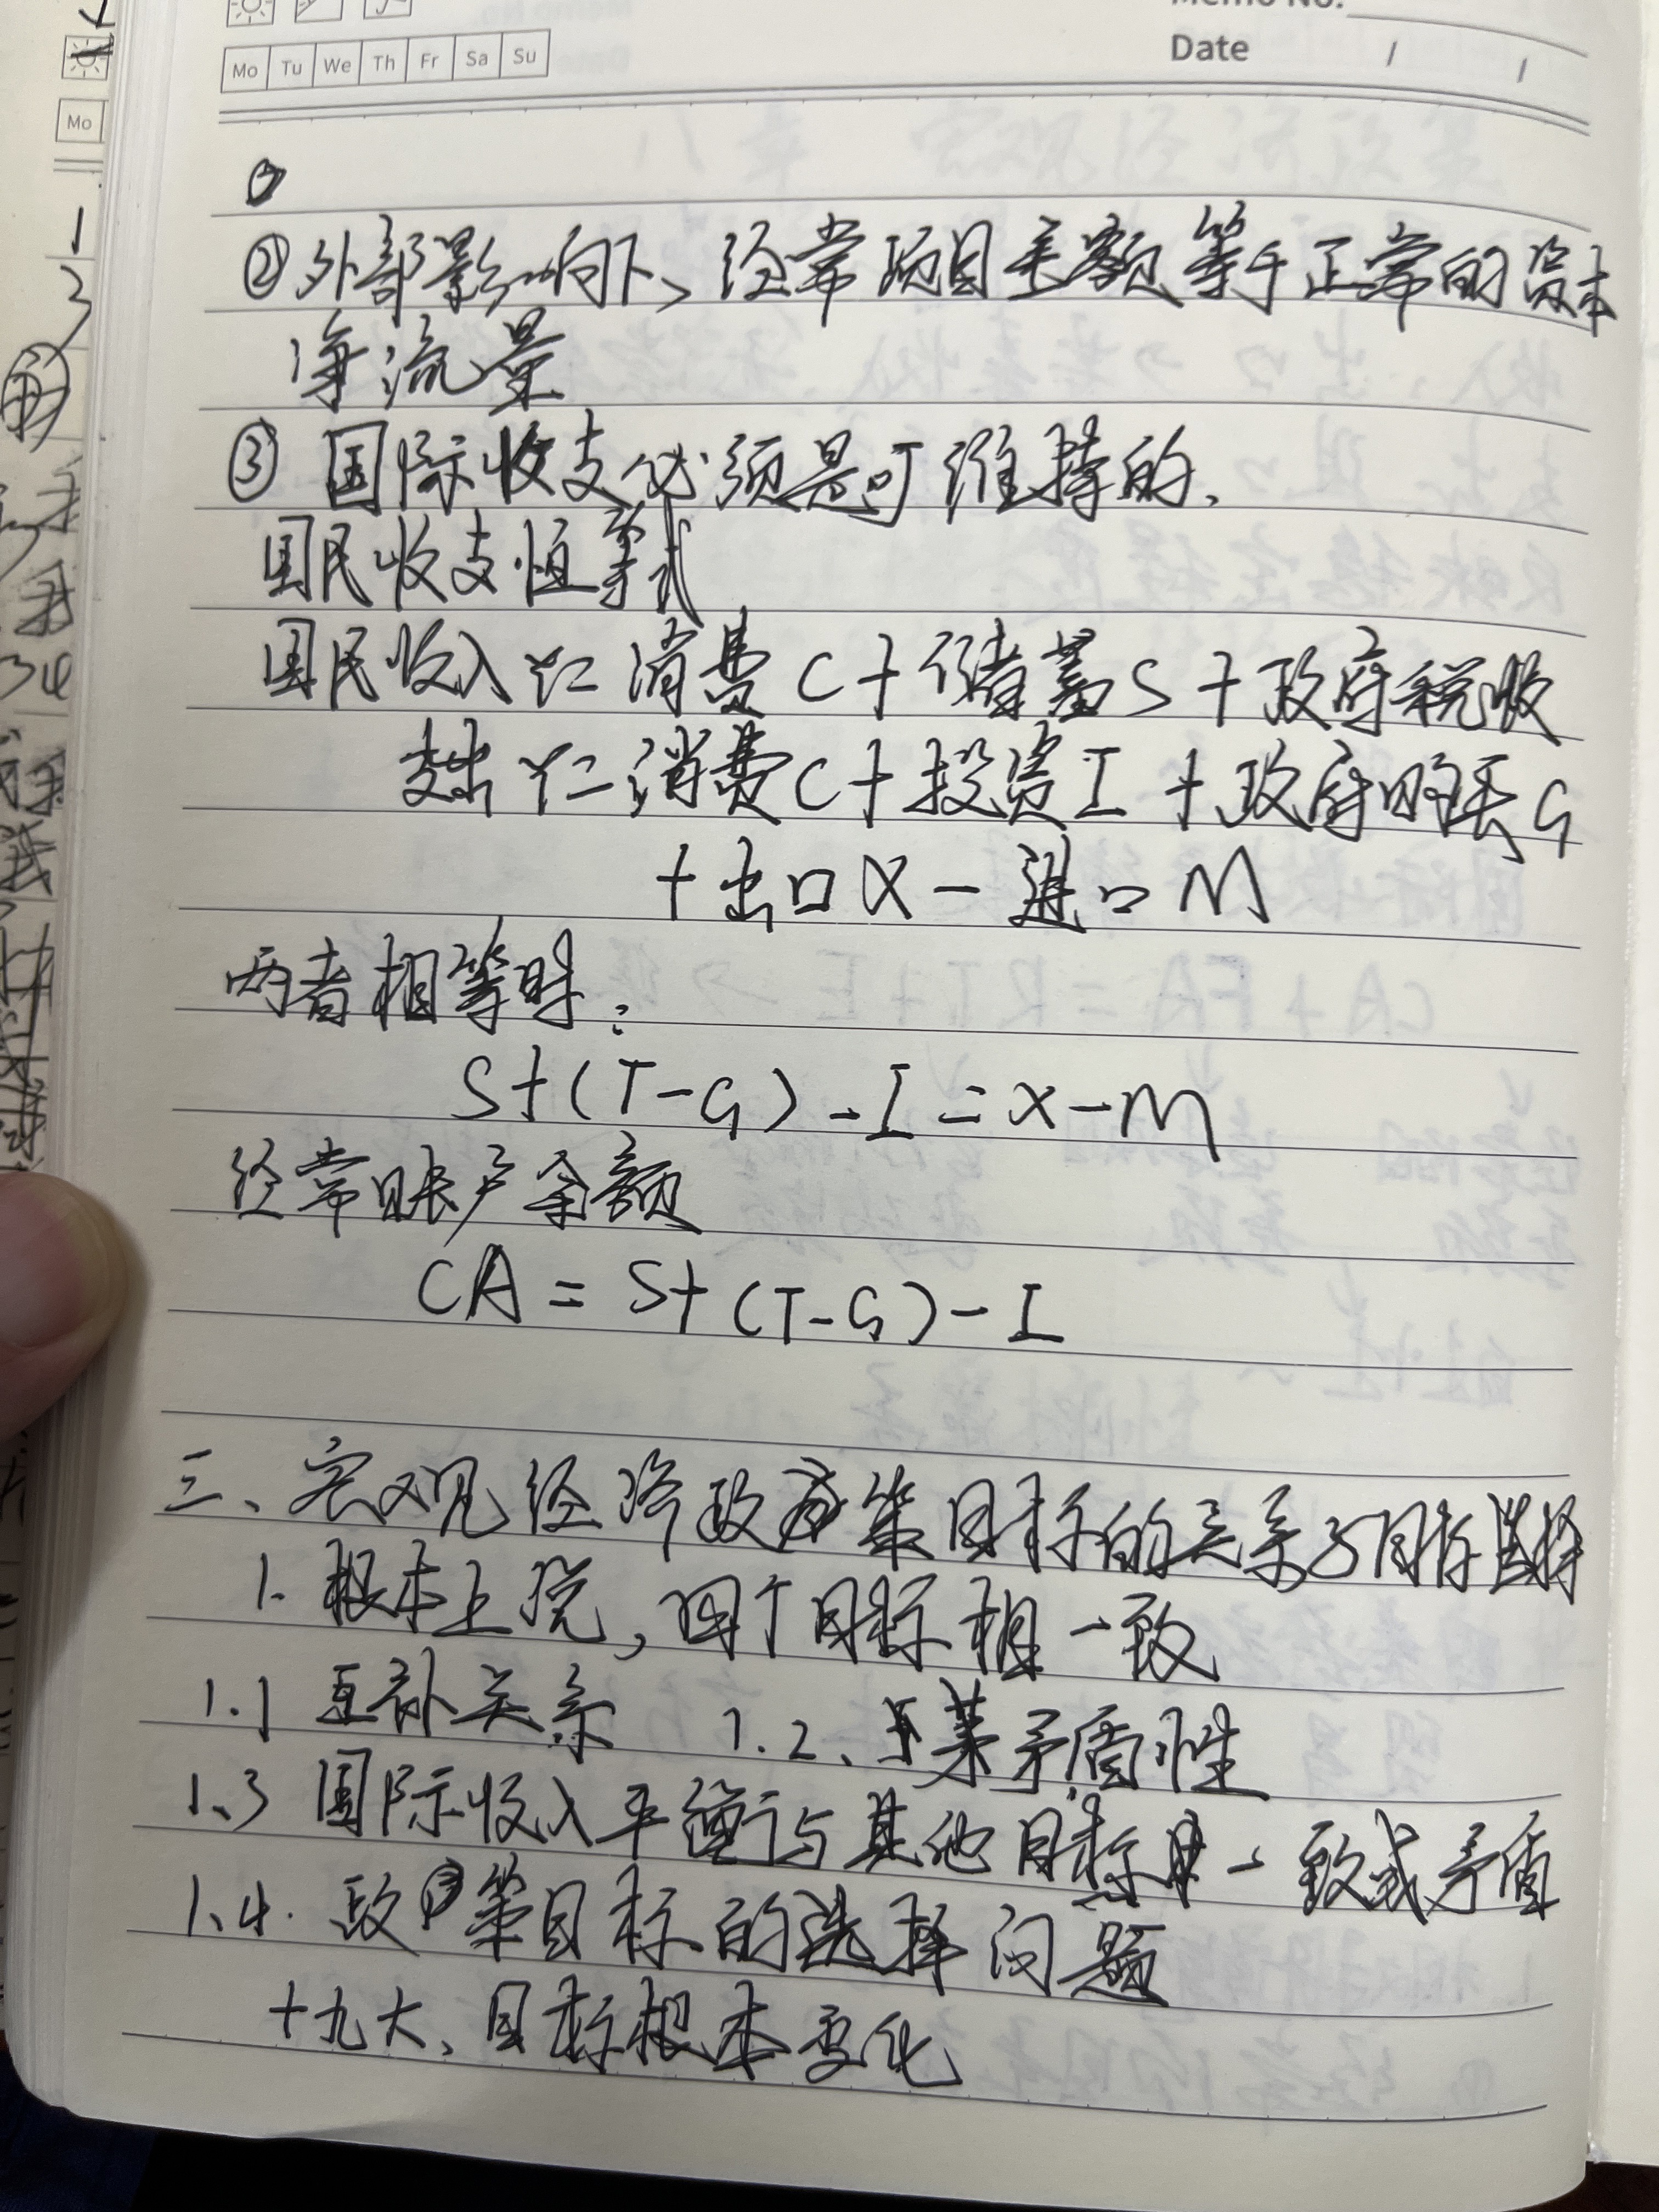 Memo No.
Mo Tu We Th Fr Sa Su
Date / /
Mo
②外部影响下、经常项目差额等于正常的资本
净流量
③ 国际收支必须是可维持的、
国民收支恒等式
国民收入Y= 消费C+储蓄S+政府税收
支出Y= 消费C+投资I+政府购买G
+出口X-进口M
两者相等时:
S+(T-G)-I=X-M
经常账户余额
CA = S+(T-G)-I
三、宏观经济政策目标的关系与目标选择
1. 根本上说,四个目标相一致
1.1 互补关系 1.2、某矛盾性
1.3 国际收入平衡与其他目标一致或矛盾
1.4. 政策目标的选择问题
十九大、目标根本变化